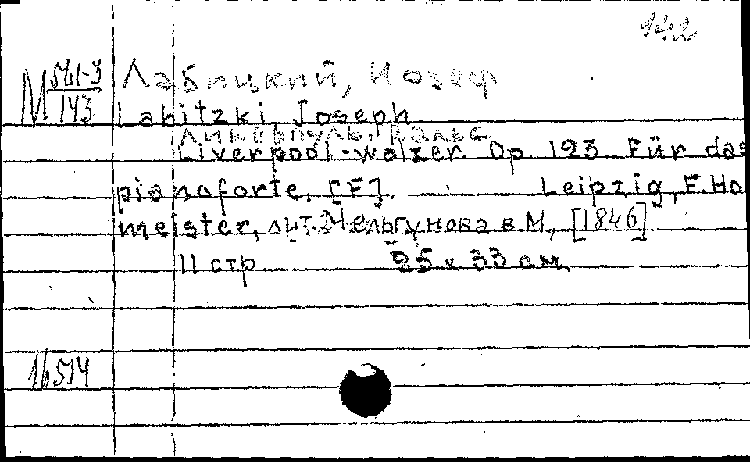 М 561-3/143
Лабицкий, Иозеф
Labitzki, Joseph
Ливерпуль, вальс
Liverpool-walzer. Op 123. Für das
pianoforte. [F]. Leipzig, F. Ho
meister, лит. Мельгунова в М., [1846]
11 стр 25 x 33 см.
16514